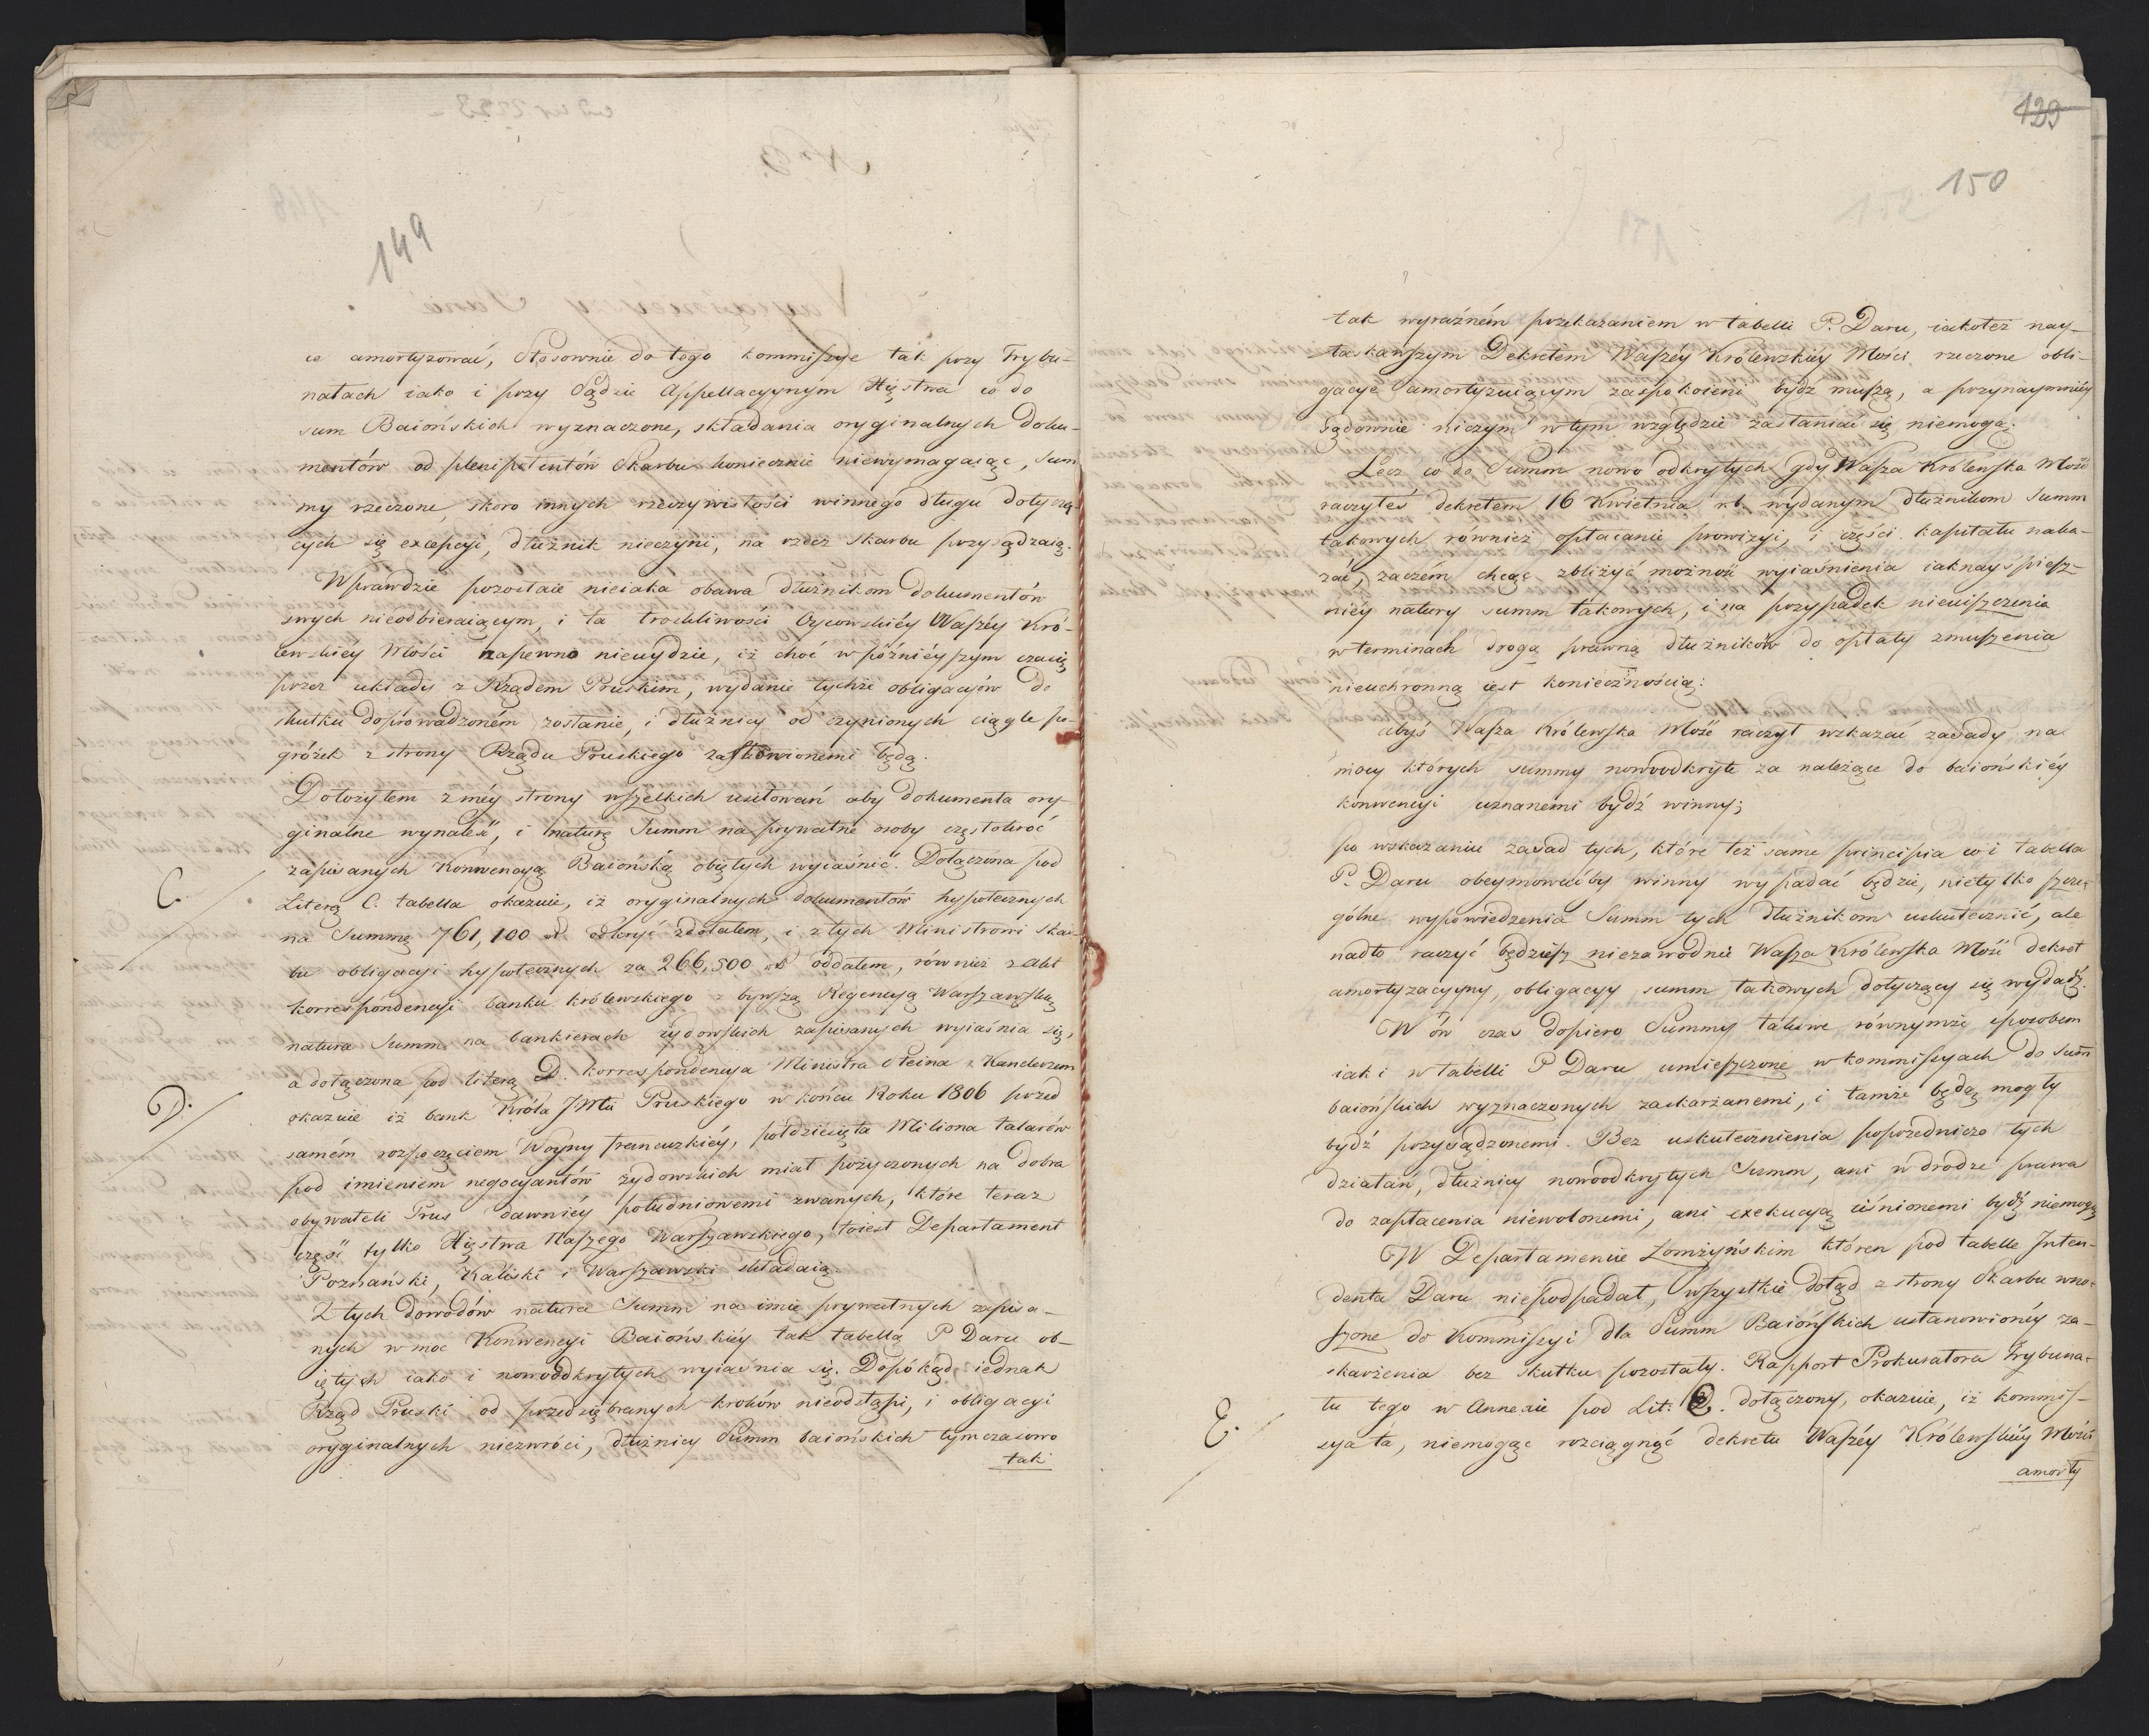 149
ce amortyzować, Stosownie do tego kommiszye tak przy Trybu-
nałach iako i przy Sądzie Appellacyynym Xięstwa co do
sum Baiońskich wyznaczone, składania oryginalnych doku-
mentów od plenipotentów Skarbu koniecznie niewymagaiąc, sum
my rzeczone, skoro innych rzeczywistości winnego długu dotyczą
cych się excepcyi, dłużnik nieczyni, na rzecz skarbu przysądzaią.
Wprawdzie pozostaie nieiaka obawa dłużnikom dokumentów
swych nieodbieraiącym, i ta troskliwości Oycowskiéy Waszéy Kró-
lewskiéy Mości zapewno nieuydzie, iż choć w późniéyszym czasie
przez układy z Rządem Pruskim, wydanie tychże obligacyów do
skutku doprowadzoném zostanie, i dłużnicy od czynionych ciągle po-
gróżek z strony Rządu Pruskiego zasłonionemi będą.
Dołożyłem z méy strony wszelkich usiłowań aby dokumenta ory-
ginalne wynaleść, i naturę Summ na prywatne osoby częstokroć
zapisanych Konwencyą Baiońską obiętych wyiaśnić. Dołączona pod
C.
Literą C. tabella okazuie, iż oryginalnych dokumentów hypotecznych
na Summę 761,100 odkryć zdołałem, i z tych Ministrowi Skar-
bu obligacyi hypotecznych za 266,500 oddałem, również z akt
korrespondencyi banku królewskiego z bywszą Regencyą Warszawską
natura Summ na bankierach żydowskich zapisanych wyiaśnia się,
a dołączona pod literą D. korrespondencya Ministra Steina z Kanclerzem
D.
okazuie iż bank Króla JMci Pruskiego w końcu Roku 1806 przed
samém rozpoczęciem Woyny francuzkiéy, półdziesięta Miliona talarów
pod imieniem negocyantów żydowskich miał pożyczonych na dobra
obywateli Prus dawniéy południowemi zwanych, które teraz
część tylko Xięstwa Naszego Warszawskiego, toiest Departament
Poznański, Kaliski i Warszawski składaią.
Z tych dowodów natura Summ na imie prywatnych zapisa-
nych w moc Konwencyi Baiońskiéy tak tabellą P Daru ob-
iętych iako i nowoodkrytych wyiaśnia się. Dopókąd iednak
Rząd Pruski od przedsiębranych kroków nieodstąpi, i obligacyi
oryginalnych niezwróci, dłużnicy Summ baiońskich tymczasowo
tak
129
150
tak wyraźném przekazaniem w tabelli P. Daru, iakoteż nay-
łaskawszym Dekretem Waszéy Królewskiéy Mości rzeczone obli-
gacye amortyzuiącym zaspokoieni bydź muszą, a przynaymniéy
sądownie niczym w tym względzie zasłaniać się niemogą.
Lecz co do Summ nowo odkrytych gdy Wasza Królewska Mość
raczyłeś dekretem 16 Kwietnia r.b. wydanym dłużnikom summ
takowych również opłacanie prowizyi, i części kapitału naka-
zać, zaczém chcąc zbliżyć możność wyiaśnienia iaknayśpiesz-
niéy natury summ takowych, i na przypadek nieuiszczenia
w terminach drogą prawną dłużników do opłaty zmuszenia
nieuchronną iest koniecznością:
abyś Wasza Królewska Mość raczył wskazać zasady na
mocy których summy nowoodkryte za należące do baiońskiéy
konwencyi uznanemi bydź winny;
po wskazaniu zasad tych, które też same principia co i tabella
P. Daru obeymowaćby winny wypadać będzie, nietylko szcze-
gólne wypowiedzenia Summ tych dłużnikom uskutecznić, ale
nadto raczyć będziesz niezawodnie Wasza Królewska Mość dekret
amortyzacyyny, obligacyy summ takowych dotyczący się wydać.
W ów czas dopiero Summy takowe równymże sposobem
iak i w tabelli P Daru umieszczone w kommissyach do sum̄
baiońskich wyznaczonych zaskarżanemi, i tamże będą mogły
bydź przysądzonemi. Bez uskutecznienia poprzedniczo tych
działań, dłużnicy nowoodkrytych Summ, ani w drodze prawa
do zapłacenia niewolonemi, ani exekucyą ciśnionemi bydź niemogą
W Departamencie Łomżyńskim któren pod tabelle Inten-
denta Daru niepodpadał, wszystkie dotąd z strony Skarbu wno-
szone do Kommiszyi dla Summ Baiońskich ustanowionéy za-
skarżenia bez skutku pozostały. Rapport Prokuratora Trybuna-
łu tego w Annexie pod Lit: E. dołączony, okazuie, iż kommis-
E.
sya ta, niemogąc rozciągnąć dekretu Waszéy Królewskiéy Mości
amorty